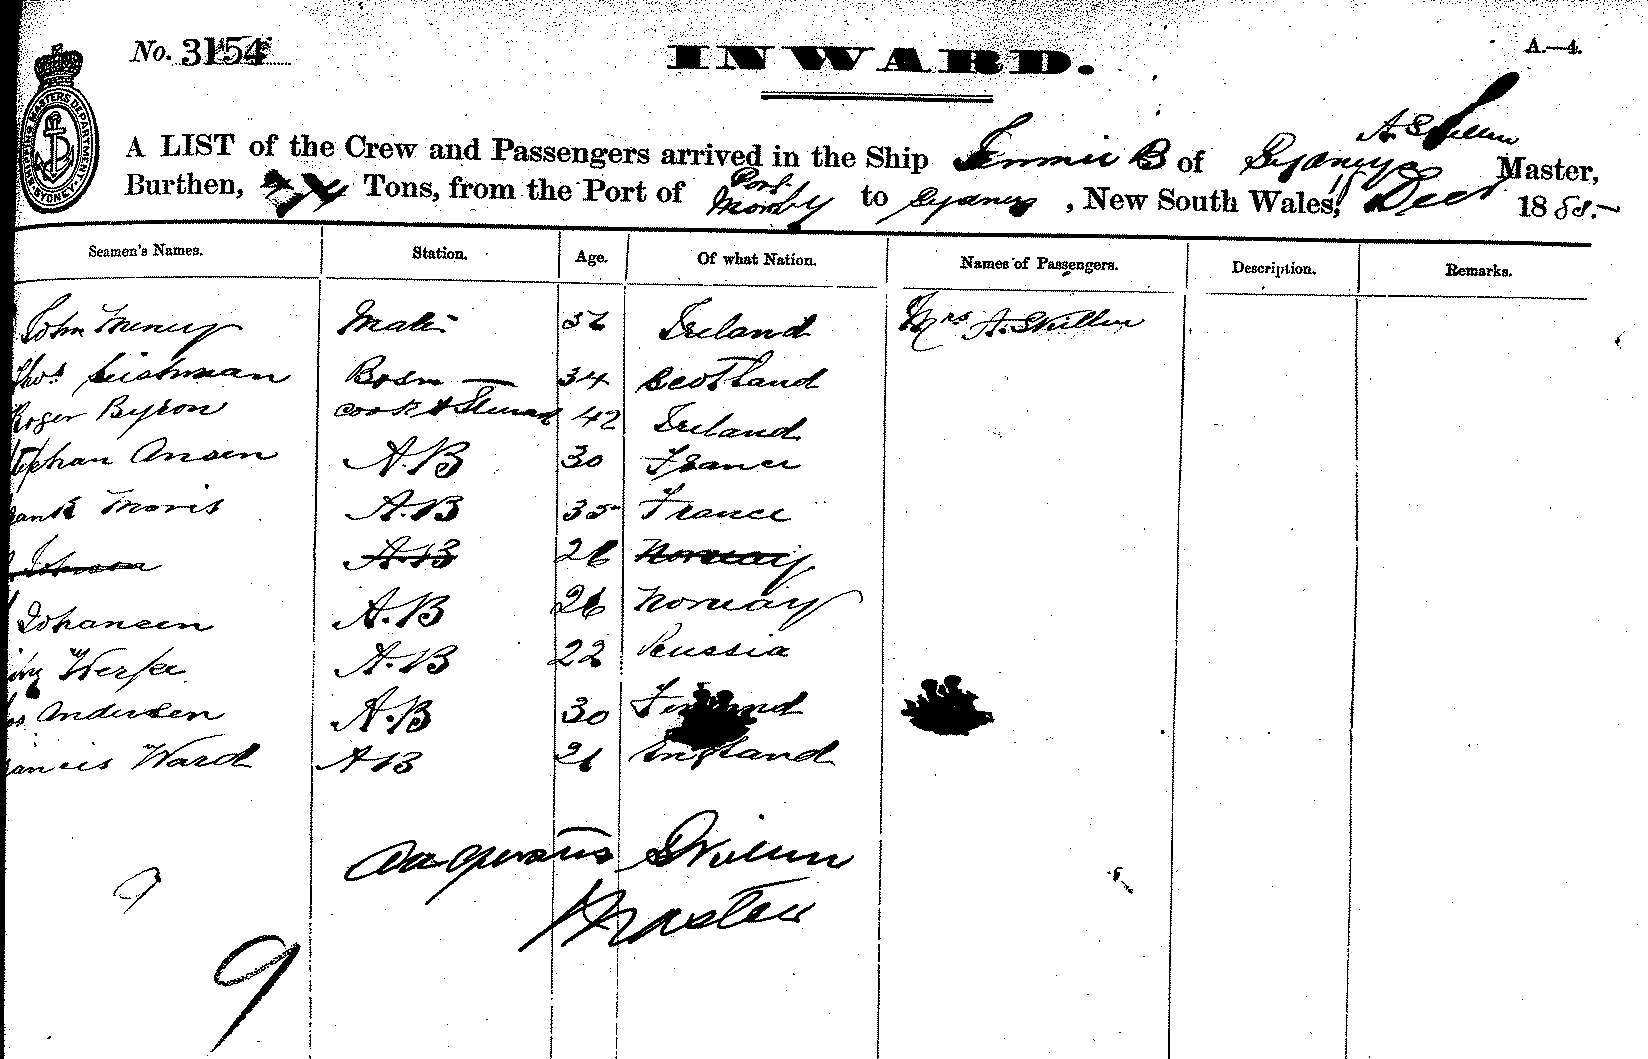 No. 3154 INWARD. A.—4.
A LIST of the Crew and Passengers arrived in the Ship Jennie B of Sydney, A Skillen Master,
Burthen, Tons, from the Port of Port Moresby to Sydney, New South Wales, Dec 1888.
Seamen's Names. Station. Age. Of what Nation. Names of Passengers. Description. Remarks.
John Mate Ireland Mrs A. Skillen
Thos Leishman Bosn 34 Scotland
Roger Byron Cook & Steward 42 Ireland
Stephan Ansen A.B 30 France
Frank Moris A.B 35 France
Johnson A.B 26 Norway
Johansen A.B 26 Norway
A.B 22 Russia
Andersen A.B 30 Finland
Francis Ward AB 21 England
Skillen
Master
9
9